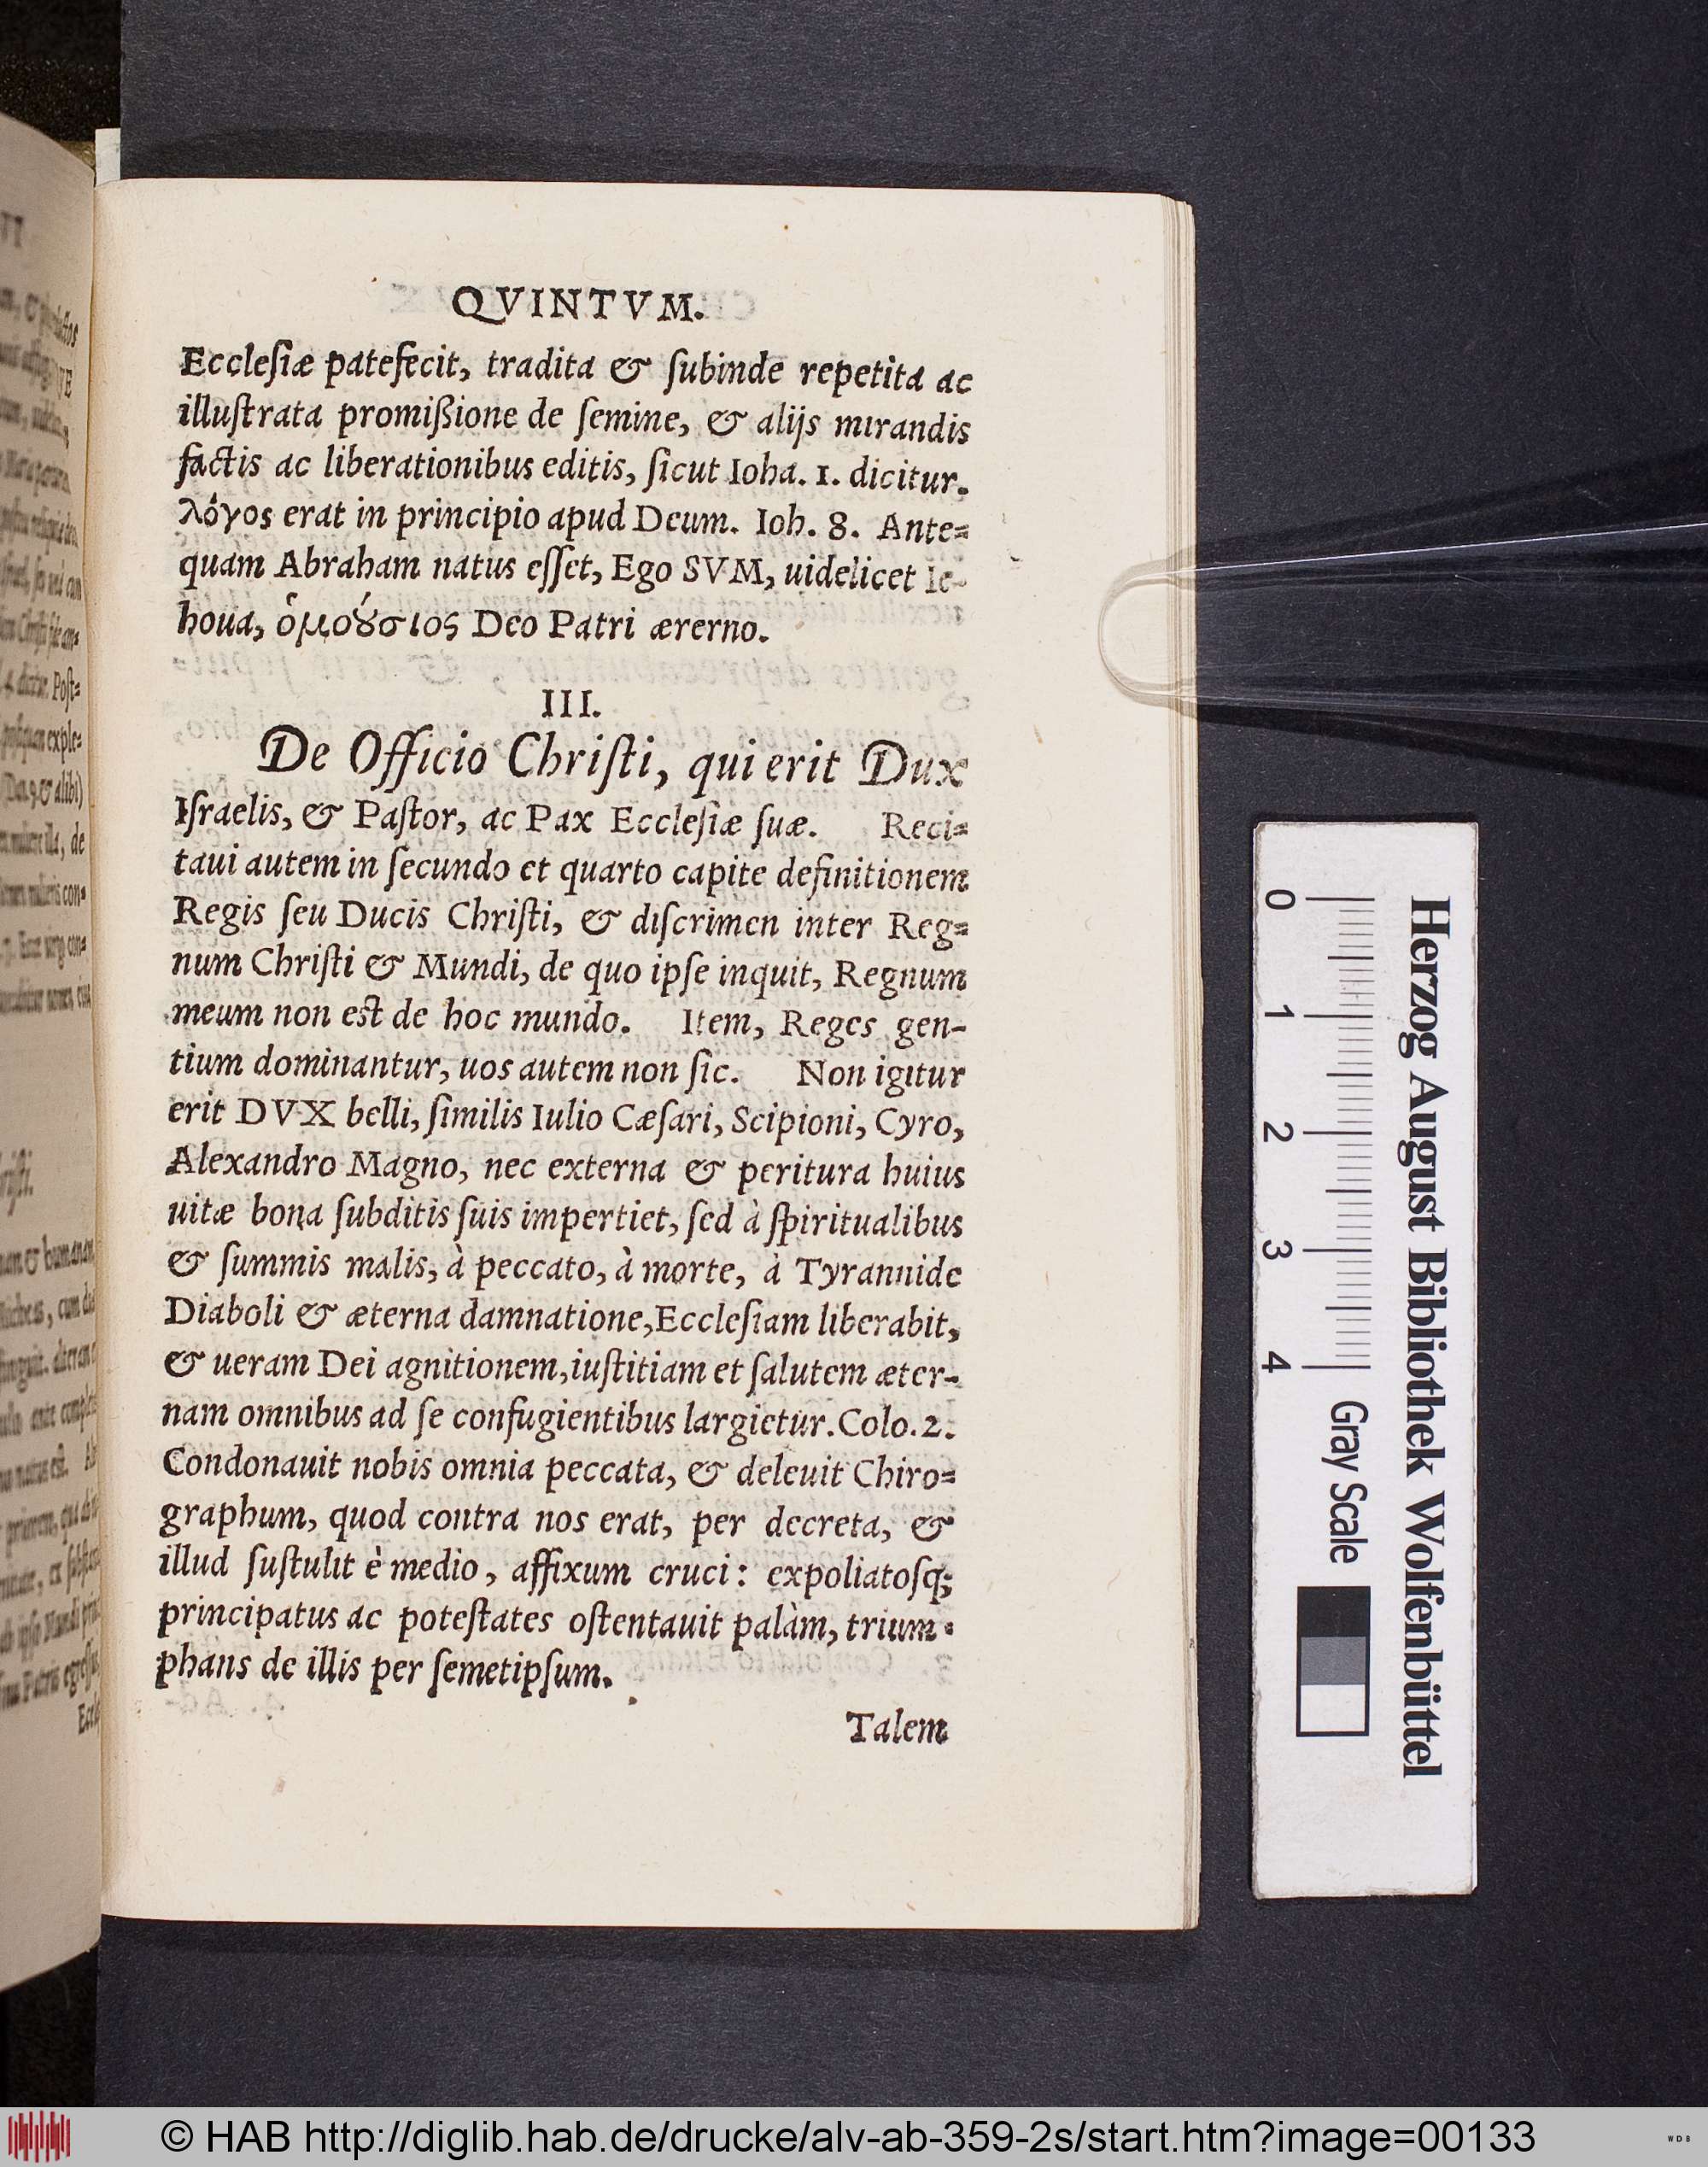 QVINTVM.
Eccleſiæ patefecit, tradita & ſubinde repetita ac
illuſtrata promiſsione de ſemine, & alijs mirandis
factis ac liberationibus editis, ſicut Ioha. 1. dicitur.
λόγος erat in principio apud Deum. Ioh. 8. Ante=
quam Abraham natus eſſet, Ego SVM, uidelicet Ie-
houa, ὁμούσιος Deo Patri ærerno.
III.
De Officio Chriſti, qui erit Dux
Iſraelis, & Paſtor, ac Pax Eccleſiæ ſuæ. Reci=
taui autem in ſecundo et quarto capite definitionem
Regis ſeu Ducis Chriſti, & diſcrimen inter Reg=
num Chriſti & Mundi, de quo ipſe inquit, Regnum
meum non est de hoc mundo. Item, Reges gen-
tium dominantur, uos autem non ſic. Non igitur
erit DVX belli, ſimilis Iulio Cæſari, Scipioni, Cyro,
Alexandro Magno, nec externa & peritura huius
uitæ bona ſubditis ſuis impertiet, ſed à ſpiritualibus
& ſummis malis, à peccato, à morte, à Tyrannide
Diaboli & æterna damnatione, Eccleſiam liberabit,
& ueram Dei agnitionem, iuſtitiam et ſalutem æter-
nam omnibus ad ſe confugientibus largietur. Colo. 2.
Condonauit nobis omnia peccata, & deleuit Chiro=
graphum, quod contra nos erat, per decreta, &
illud ſuſtulit è medio, affixum cruci: expoliatoſq;
principatus ac poteſtates oſtentauit palàm, trium-
phans de illis per ſemetipſum.
Talem
Herzog August Bibliothek Wolfenbüttel
0 1 2 3 4 Gray Scale
© HAB http://diglib.hab.de/drucke/alv-ab-359-2s/start.htm?image=00133
WDB